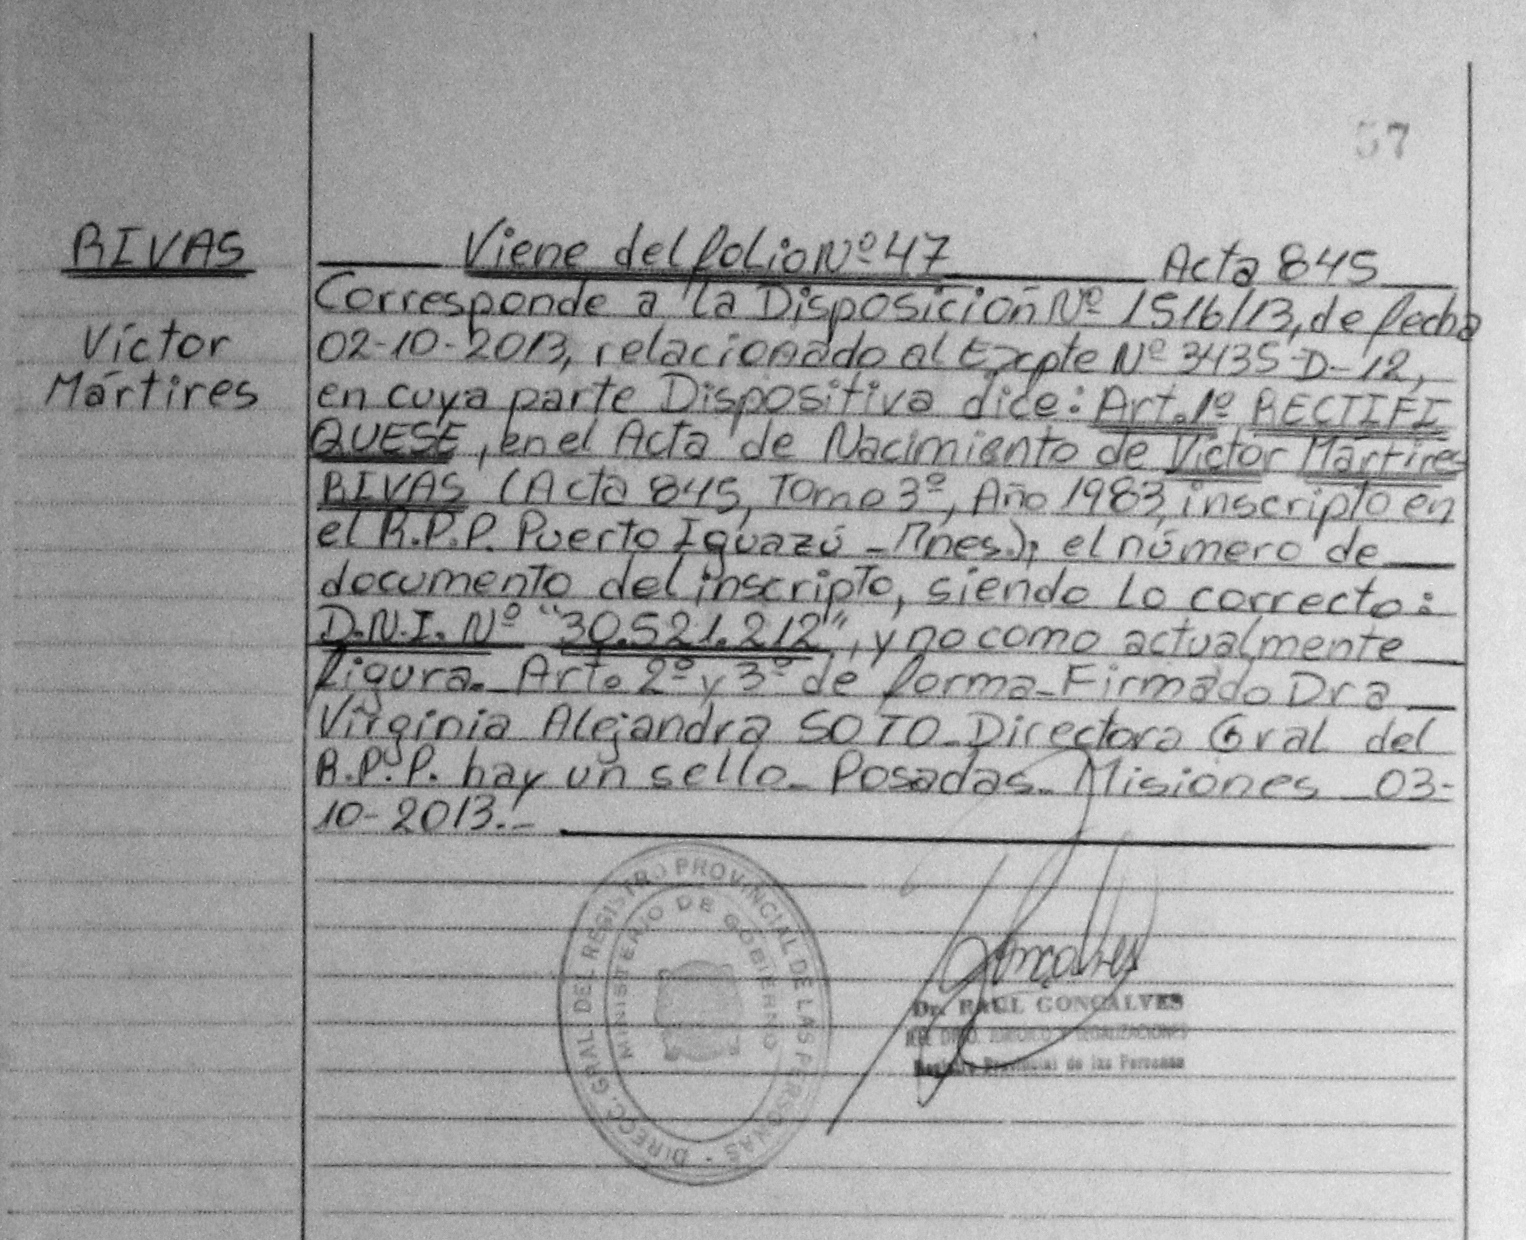 57
RIVAS
Víctor
Mártires
Viene del folio Nº 47 Acta 845
Corresponde a la Disposición Nº 1516/13, de fecha
02-10-2013, relacionado al Expte Nº 3435-D-12,
en cuya parte Dispositiva dice: Art. 1º RECTIFI
QUESE, en el Acta de Nacimiento de Víctor Mártires
RIVAS (Acta 845, Tomo 3º, Año 1983, inscripto en
el R.P.P. Puerto Iguazú - Mnes.); el número de
documento del inscripto, siendo lo correcto:
D.N.I. Nº "30.521.212", y no como actualmente
figura. Art. 2º y 3º de forma - Firmado Dra
Virginia Alejandra SOTO - Directora Gral del
R.P.P. hay un sello - Posadas - Misiones 03-
10-2013.-
DIRECC. GRAL. DEL REGISTRO PROVINCIAL DE LAS PERSONAS
MINISTERIO DE GOBIERNO
Gonçalves
Dr. RAUL GONÇALVES
JEFE DPTO. JURIDICO Y LEGALIZACIONES
Registro Provincial de las Personas